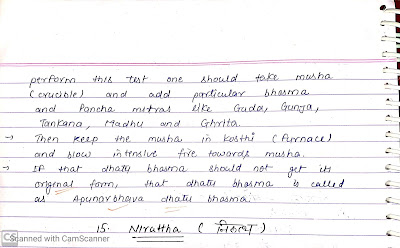 perform this test one should take musha
(crucible) and add particular bhasma
and Pancha mitras like Guda, Gunja,
Tankana, Madhu and Ghrita
→ Then keep the musha in kosthi (Furnace)
and blow intensive fire towards musha.
→ If that dhatu bhasma should not get its
original form, that dhatu bhasma is called
as Apunarbhava dhatu bhasma.
15. Nirattha (निरुत्थ)
CS Scanned with CamScanner